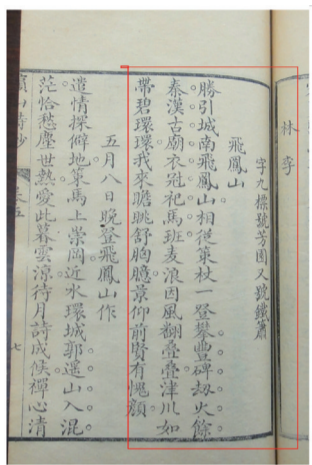 林
字九標號芳園又號鐵蕭
飛鳳山
勝引城南飛鳳山相從策杖一登攀豐碑刼火餘
秦漢古廟衣冠祀馬班麥浪因風翻疊疊津川如
帶碧環環我來瞻眺舒胸臆景仰前賢有愧顔
五月八日晚登飛鳳山作
遣情探僻地策馬上崇岡近水環城郭遥山入混
茫恰愁塵世熱愛此暮雲涼待月詩成候禪心清
山詩鈔 五 七